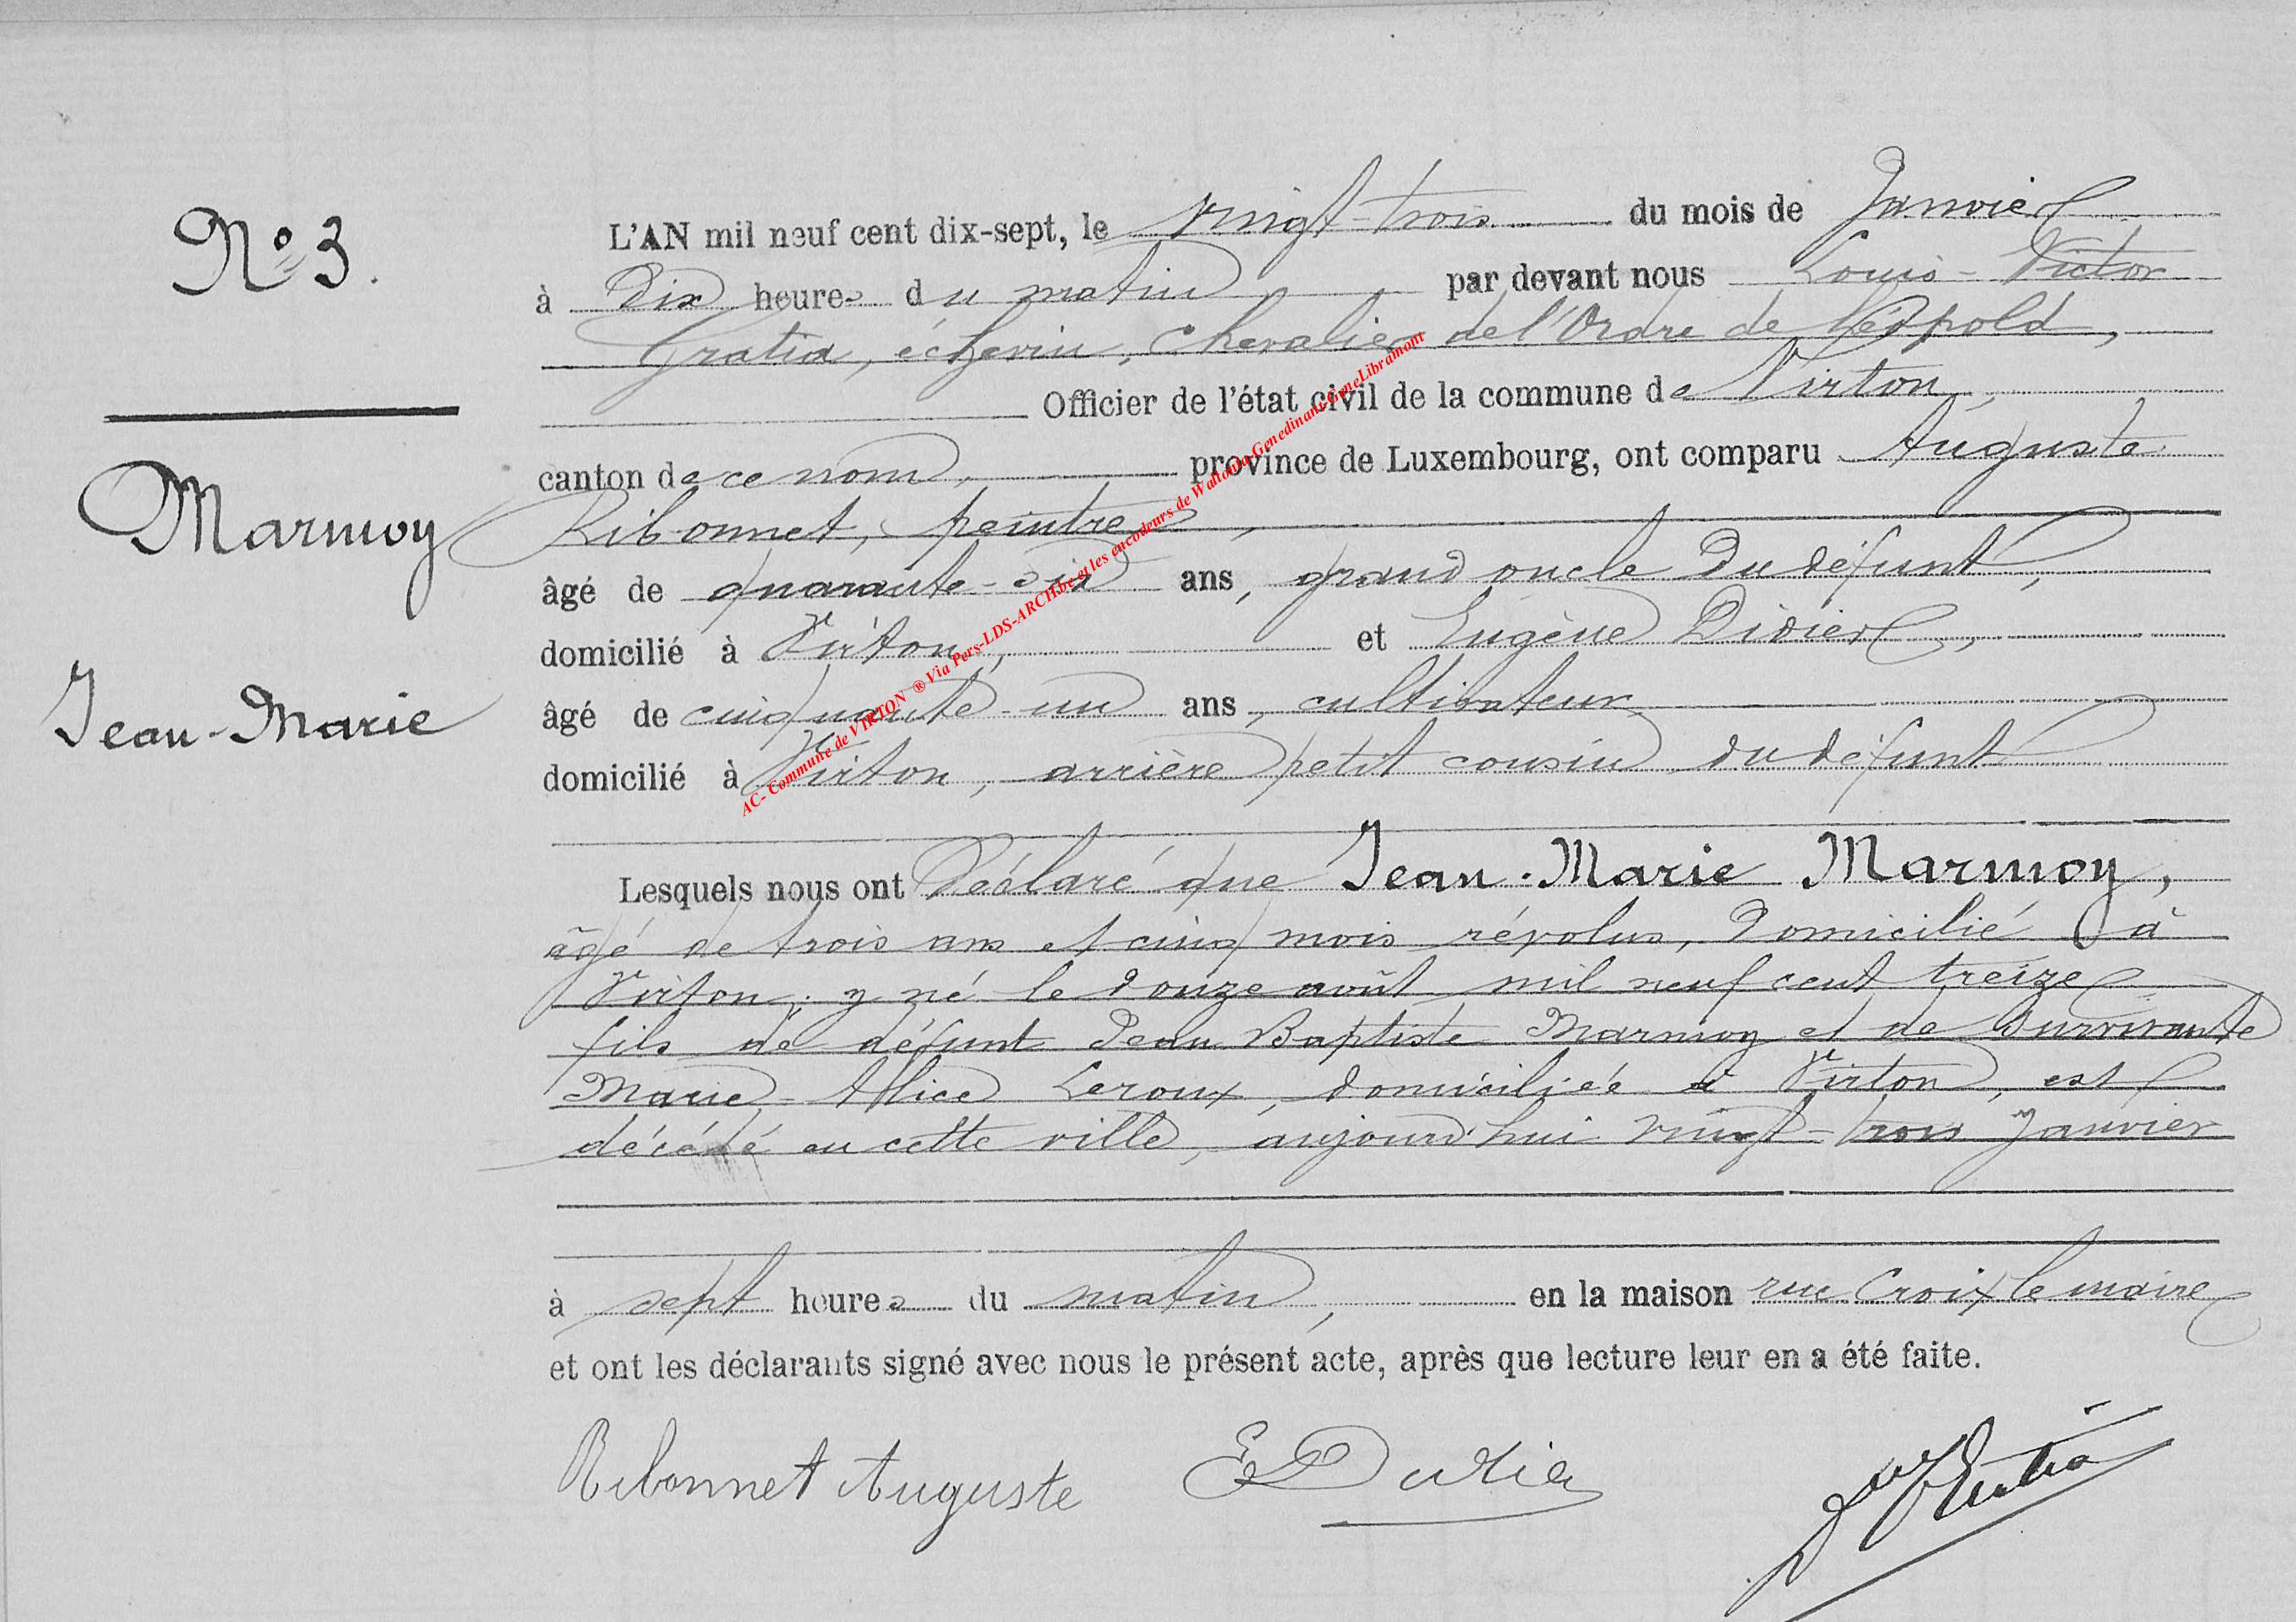 N° 3.
Marmoy
Jean-Marie
L'AN mil neuf cent dix-sept, le vingt-trois du mois de Janvier
à Dix heures du matin par devant nous Louis-Victor
Gratia, échevin, Chevalier de l'Ordre de Léopold,
Officier de l'état civil de la commune de Virton,
canton de ce nom, province de Luxembourg, ont comparu Auguste
Ribonnet, peintre,
âgé de quarante-six ans, grand oncle du défunt,
domicilié à Virton, et Eugène Didier,
âgé de cinquante-un ans, cultivateur
domicilié à Virton, arrière petit cousin du défunt
Lesquels nous ont Déclaré que Jean-Marie Marmoy,
âgé de trois ans et cinq mois révolus, Domicilié à
Virton, y né le douze août mil neuf cent treize
fils de défunt Jean Baptiste Marmoy et de survivante
Marie-Alice Leroux, domiciliée à Virton, est
décédé en cette ville, aujourd'hui vingt-trois Janvier
à sept heures du matin, en la maison rue Croix le maire
et ont les déclarants signé avec nous le présent acte, après que lecture leur en a été faite.
Ribonnet Auguste E Didier
AC- Commune de VIRTON ® Via Pers-LDS-ARCH.be et les encodeurs de Wallonia-Genedinant-GeneLibramont